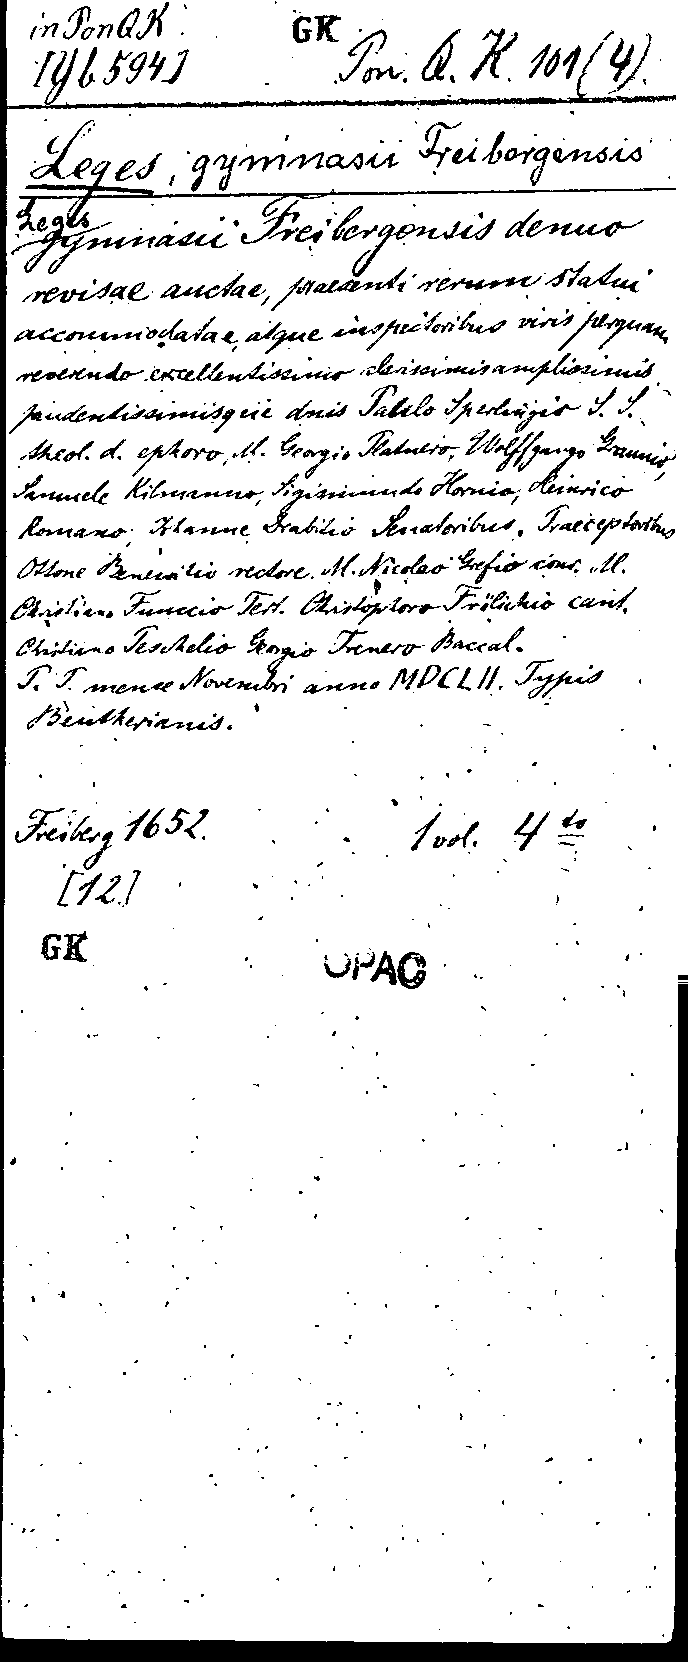 in Pon Q K GK
[Yb 594] Pon. Q. K. 101 (4).
Leges, gymnasii Freibergensis
Leges
gymnasii Freibergensis denuo
revisae auctae, praesenti rerum statui
accommodatae, atque inspectoribus viris perquam
reverendo excellentissimo clarissimis amplissimis
prudentissimisque dnis Paulo Sperlingio S. S.
theol. d. ephoro, M. Georgio Platnero, Wolffgango
Samuele Kilmanno, Sigismundo Hornio, Heinrico
Romano, Senatoribus. Praeceptoribus
Ottone rectore. M. Nicolao Grefio conr. M.
Christiano Funccio Tert. Christophoro Frölichio cant.
Christiano Teschelio Georgio Frenero Baccal.
P. P. mense Novembri anno MDCLII. Typis
Beutherianis.
Freiberg 1652. 1 vol. 4 to
[12]
GK OPAC